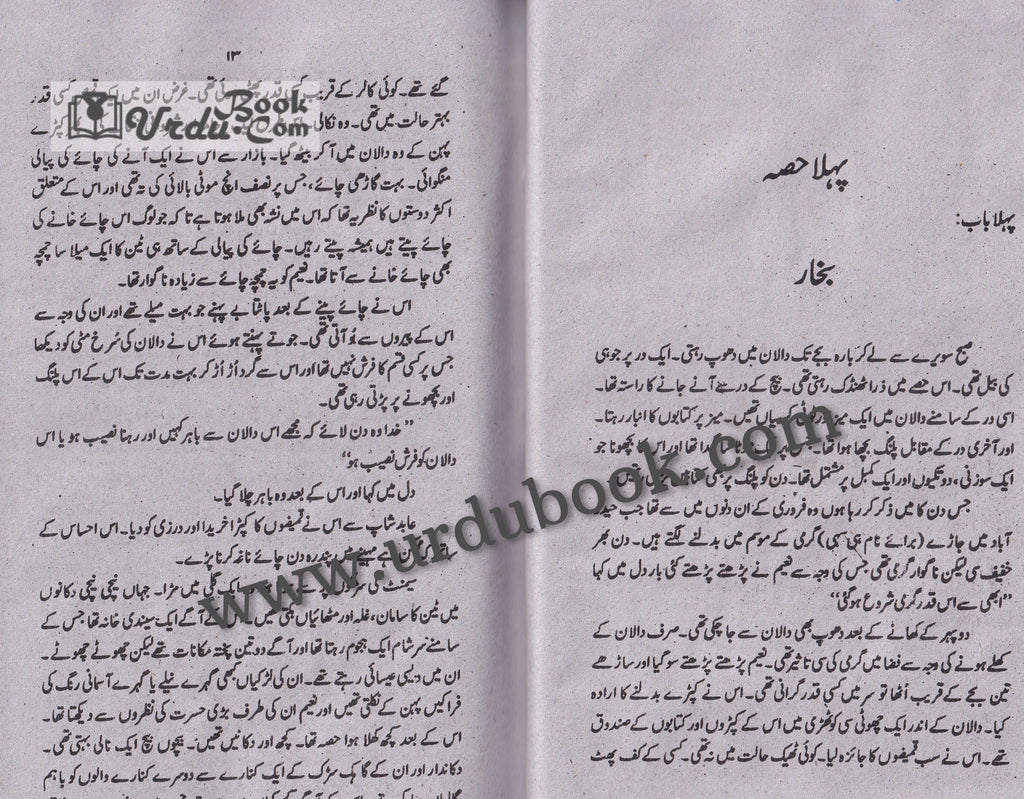 پہلا حصہ
پہلا باب:
بخار
صبح سویرے سے لے کر بارہ بجے تک دالان میں دھوپ رہتی۔ ایک در پر جوہی
کی بیل تھی۔ اس حصے میں ذرا ٹھنڈک رہتی تھی۔ بیچ کے در سے آنے جانے کا راستہ تھا۔
اسی در کے سامنے دالان میں ایک میز اور کرسیاں تھیں۔ میز پر کتابوں کا انبار رہتا۔
اور آخری در کے مقابل پلنگ بچھا ہوا تھا۔ تھا اور اس کا بچھونا جو
ایک سوزنی، دو تکیوں اور ایک کمبل پر مشتمل تھا۔ دن کو پلنگ پر بھی
جس دن کا میں ذکر کر رہا ہوں وہ فروری کے ان دنوں میں سے تھا جب حیدر
آباد میں جاڑے (برائے نام ہی سہی) گرمی کے موسم میں بدلنے لگتے ہیں۔ دن بھر
خفیف سی لیکن ناگوار گرمی تھی جس کی وجہ سے نعیم نے پڑھتے پڑھتے کئی بار دل میں کہا
”ابھی سے اس قدر گرمی شروع ہو گئی“
دوپہر کے کھانے کے بعد دھوپ بھی دالان سے جا چکی تھی۔ صرف دالان کے
کھلے ہونے کی وجہ سے فضا میں گرمی کی سی تاثیر تھی۔ نعیم پڑھتے پڑھتے سو گیا اور ساڑھے
تین بجے کے قریب اُٹھا تو سر میں کسی قدر گرانی تھی۔ اس نے کپڑے بدلنے کا ارادہ
کیا۔ دالان کے اندر ایک چھوٹی سی کوٹھڑی میں اس کے کپڑوں اور کتابوں کے صندوق
تھے۔ اس نے سب قمیضوں کا جائزہ لیا۔ کوئی ٹھیک حالت میں نہ تھی۔ کسی کے کف پھٹ
۱۳
گئے تھے۔ کوئی کالر کے قریب تھی۔ غرض ان میں کسی قدر
بہتر حالت میں تھی۔ وہ نکالی کپڑے
پہن کے وہ دالان میں آ کر بیٹھ گیا۔ بازار سے اس نے ایک آنے کی چائے کی پیالی
منگوائی۔ بہت گاڑھی چائے، جس پر نصف انچ موٹی بالائی کی تہ تھی اور اس کے متعلق
اکثر دوستوں کا نظریہ تھا کہ اس میں نشہ بھی ملا ہوتا ہے تا کہ جو لوگ اس چائے خانے کی
چائے پیتے ہیں ہمیشہ پیتے رہیں۔ چائے کی پیالی کے ساتھ ہی ٹین کا ایک میلا سا چمچہ
بھی چائے خانے سے آتا تھا۔ نعیم کو یہ چمچہ چائے سے زیادہ ناگوار تھا۔
اس نے چائے پینے کے بعد پائتابے پہنے جو بہت میلے تھے اور ان کی وجہ سے
اس کے پیروں سے بُو آتی تھی۔ جوتے پہنتے ہوئے اس نے دالان کی سُرخ مٹی کو دیکھا
جس پر کسی قسم کا فرش نہیں تھا اور اس سے گرد اُڑ اُڑ کر بہت مدت تک اس کے اس پلنگ
اور بچھونے پر پڑتی رہی تھی۔
”خدا وہ دن لائے کہ مجھے اس دالان سے باہر کہیں اور رہنا نصیب ہو یا اس
دالان کو فرش نصیب ہو“
دل میں کہا اور اس کے بعد وہ باہر چلا گیا۔
عابد شاپ سے اس نے قمیضوں کا کپڑا خریدا اور درزی کو دیا۔ اس احساس کے
ساتھ کہ مہینے میں پندرہ دن چائے ناغہ کرنا پڑے۔
سیمنٹ کی ایک گلی میں مڑا۔ جہاں نیچی نیچی دکانوں
میں ٹین کا سامان، غلہ اور مٹھائیاں بکتی تھیں آگے ایک سیندی خانہ تھا جس کے
سامنے سرِ شام ایک ہجوم رہتا تھا اور آگے دو تین پختہ مکانات تھے لیکن چھوٹے چھوٹے۔
ان میں دیسی عیسائی رہتے تھے۔ ان کی لڑکیاں بھی گہرے نیلے یا گہرے آسمانی رنگ کی
فراکیں پہن کے نکلتی تھیں اور نعیم ان کی طرف بڑی حسرت کی نظروں سے دیکھتا تھا۔
اس کے بعد کچھ کھلا ہوا حصہ تھا۔ کچھ اور دکانیں تھیں۔ بیچوں بیچ ایک نالی بہتی تھی۔
دکاندار اور ان کے گاہک سڑک کے ایک کنارے سے دوسرے کنارے والوں کو باہم
Urdu Book.Com
www.urdubook.com